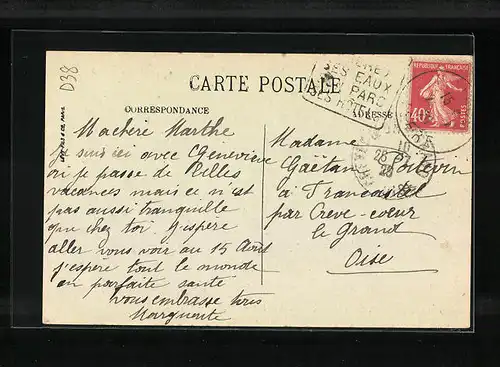 D38
CARTE POSTALE
CORRESPONDANCE
ADRESSE
SES EAUX
SON PARC
SES HOTELS
REPUBLIQUE FRANÇAISE
40c
POSTES
Ma chère Marthe
je suis ici avec Geneviève
où je passe de Belles
vacances mais ce n'est
pas aussi tranquille
que chez toi. J'espère
aller vous voir au 15 Août
j'espère tout le monde
en parfaite santé
vous embrasse tous
Marguerite
Madame
Gaëtan Poitevin
à Francastel
par Creve-coeur
le Grand
Oise